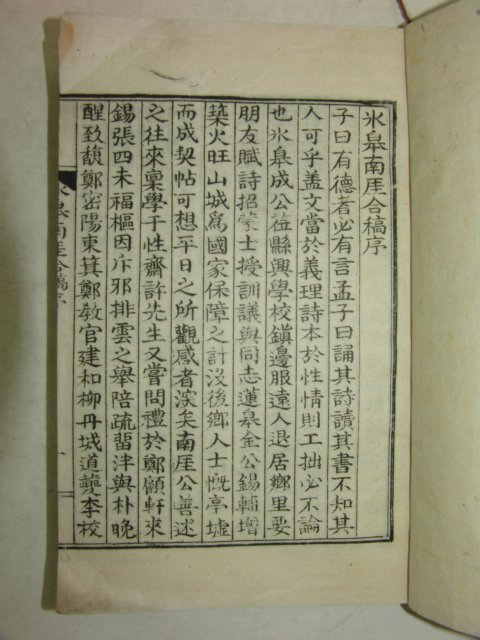 氷皐南厓合稿序
子曰有德者必有言孟子曰誦其詩讀其書不知其
人可乎盖文當於義理詩本於性情則工拙必不論
也氷皐成公莅縣興學校鎭邊服遠人退居鄕里要
朋友賦詩招蒙士授訓議與同志蓮皐金公錫輔增
築火旺山城爲國家保障之計沒後鄕人士慨亭墟
而成契帖可想平日之所觀感者深矣南厓公善述
之往來稟學于性齋許先生又嘗問禮於鄭顧軒來
錫張四未福樞因斥邪排雲之擧陪疏留泮與朴晩
醒致馥鄭密陽東箕鄭敎官建和柳丹城道夔李校
氷皐南厓合稿序
一